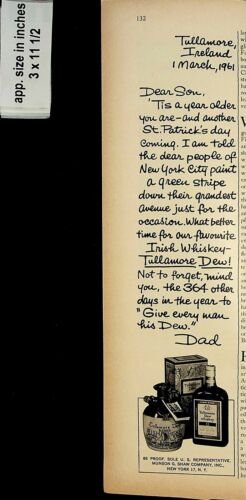 app. size in inches
3 x 11 1/2
132
Tullamore,
Ireland
1 March, 1961
Dear Son,
'Tis a year older
you are-and another
St. Patrick's day
coming. I am told
the dear people of
New York City paint
a green stripe
down their grandest
avenue just for the
occasion. What better
time for our favourite
Irish Whiskey-
Tullamore Dew!
Not to forget, mind
you, the 364 other
days in the year to
"Give every man
his Dew."
Dad
86 PROOF. SOLE U. S. REPRESENTATIVE,
MUNSON G. SHAW COMPANY, INC.,
NEW YORK 17, N. Y.